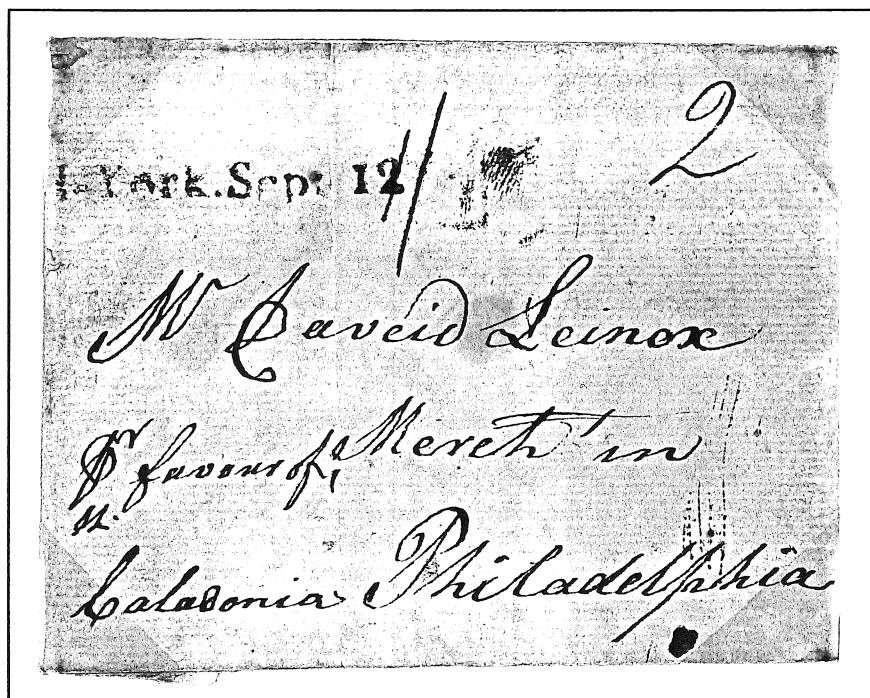 York. Sep: 12 2
Mr Daveid Leinox
Pr favour of, Mercht in
Caladonia Philadelphia